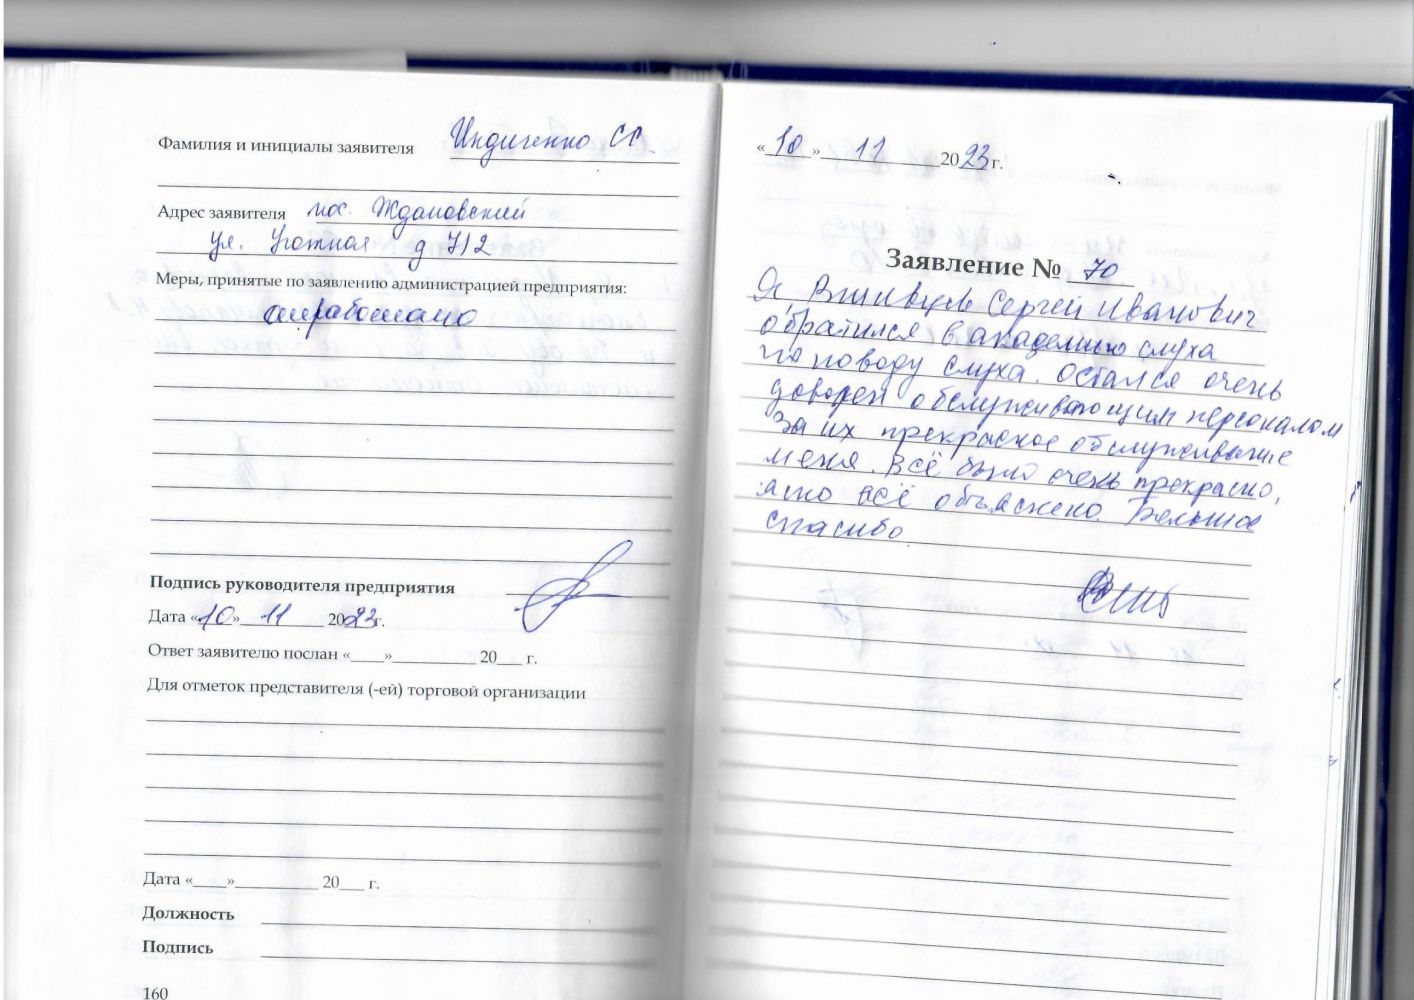 Фамилия и инициалы заявителя Индиченко СС.
Адрес заявителя пос. Ждановский
ул. Уютная д 7/2
Меры, принятые по заявлению администрацией предприятия:
отработано
Подпись руководителя предприятия
Дата «10» 11 2023г.
Ответ заявителю послан «____»__________ 20___ г.
Для отметок представителя (-ей) торговой организации
Дата «____»__________ 20___ г.
Должность
Подпись
160
«10» 11 2023 г.
Заявление № 70
Я, Сергей Иванович
обратился в академию слуха
по поводу слуха. Остался очень
доволен обслуживающим персоналом
За их прекрасное обслуживание
меня. Всё было очень прекрасно,
ясно всё объяснено. Большое
спасибо